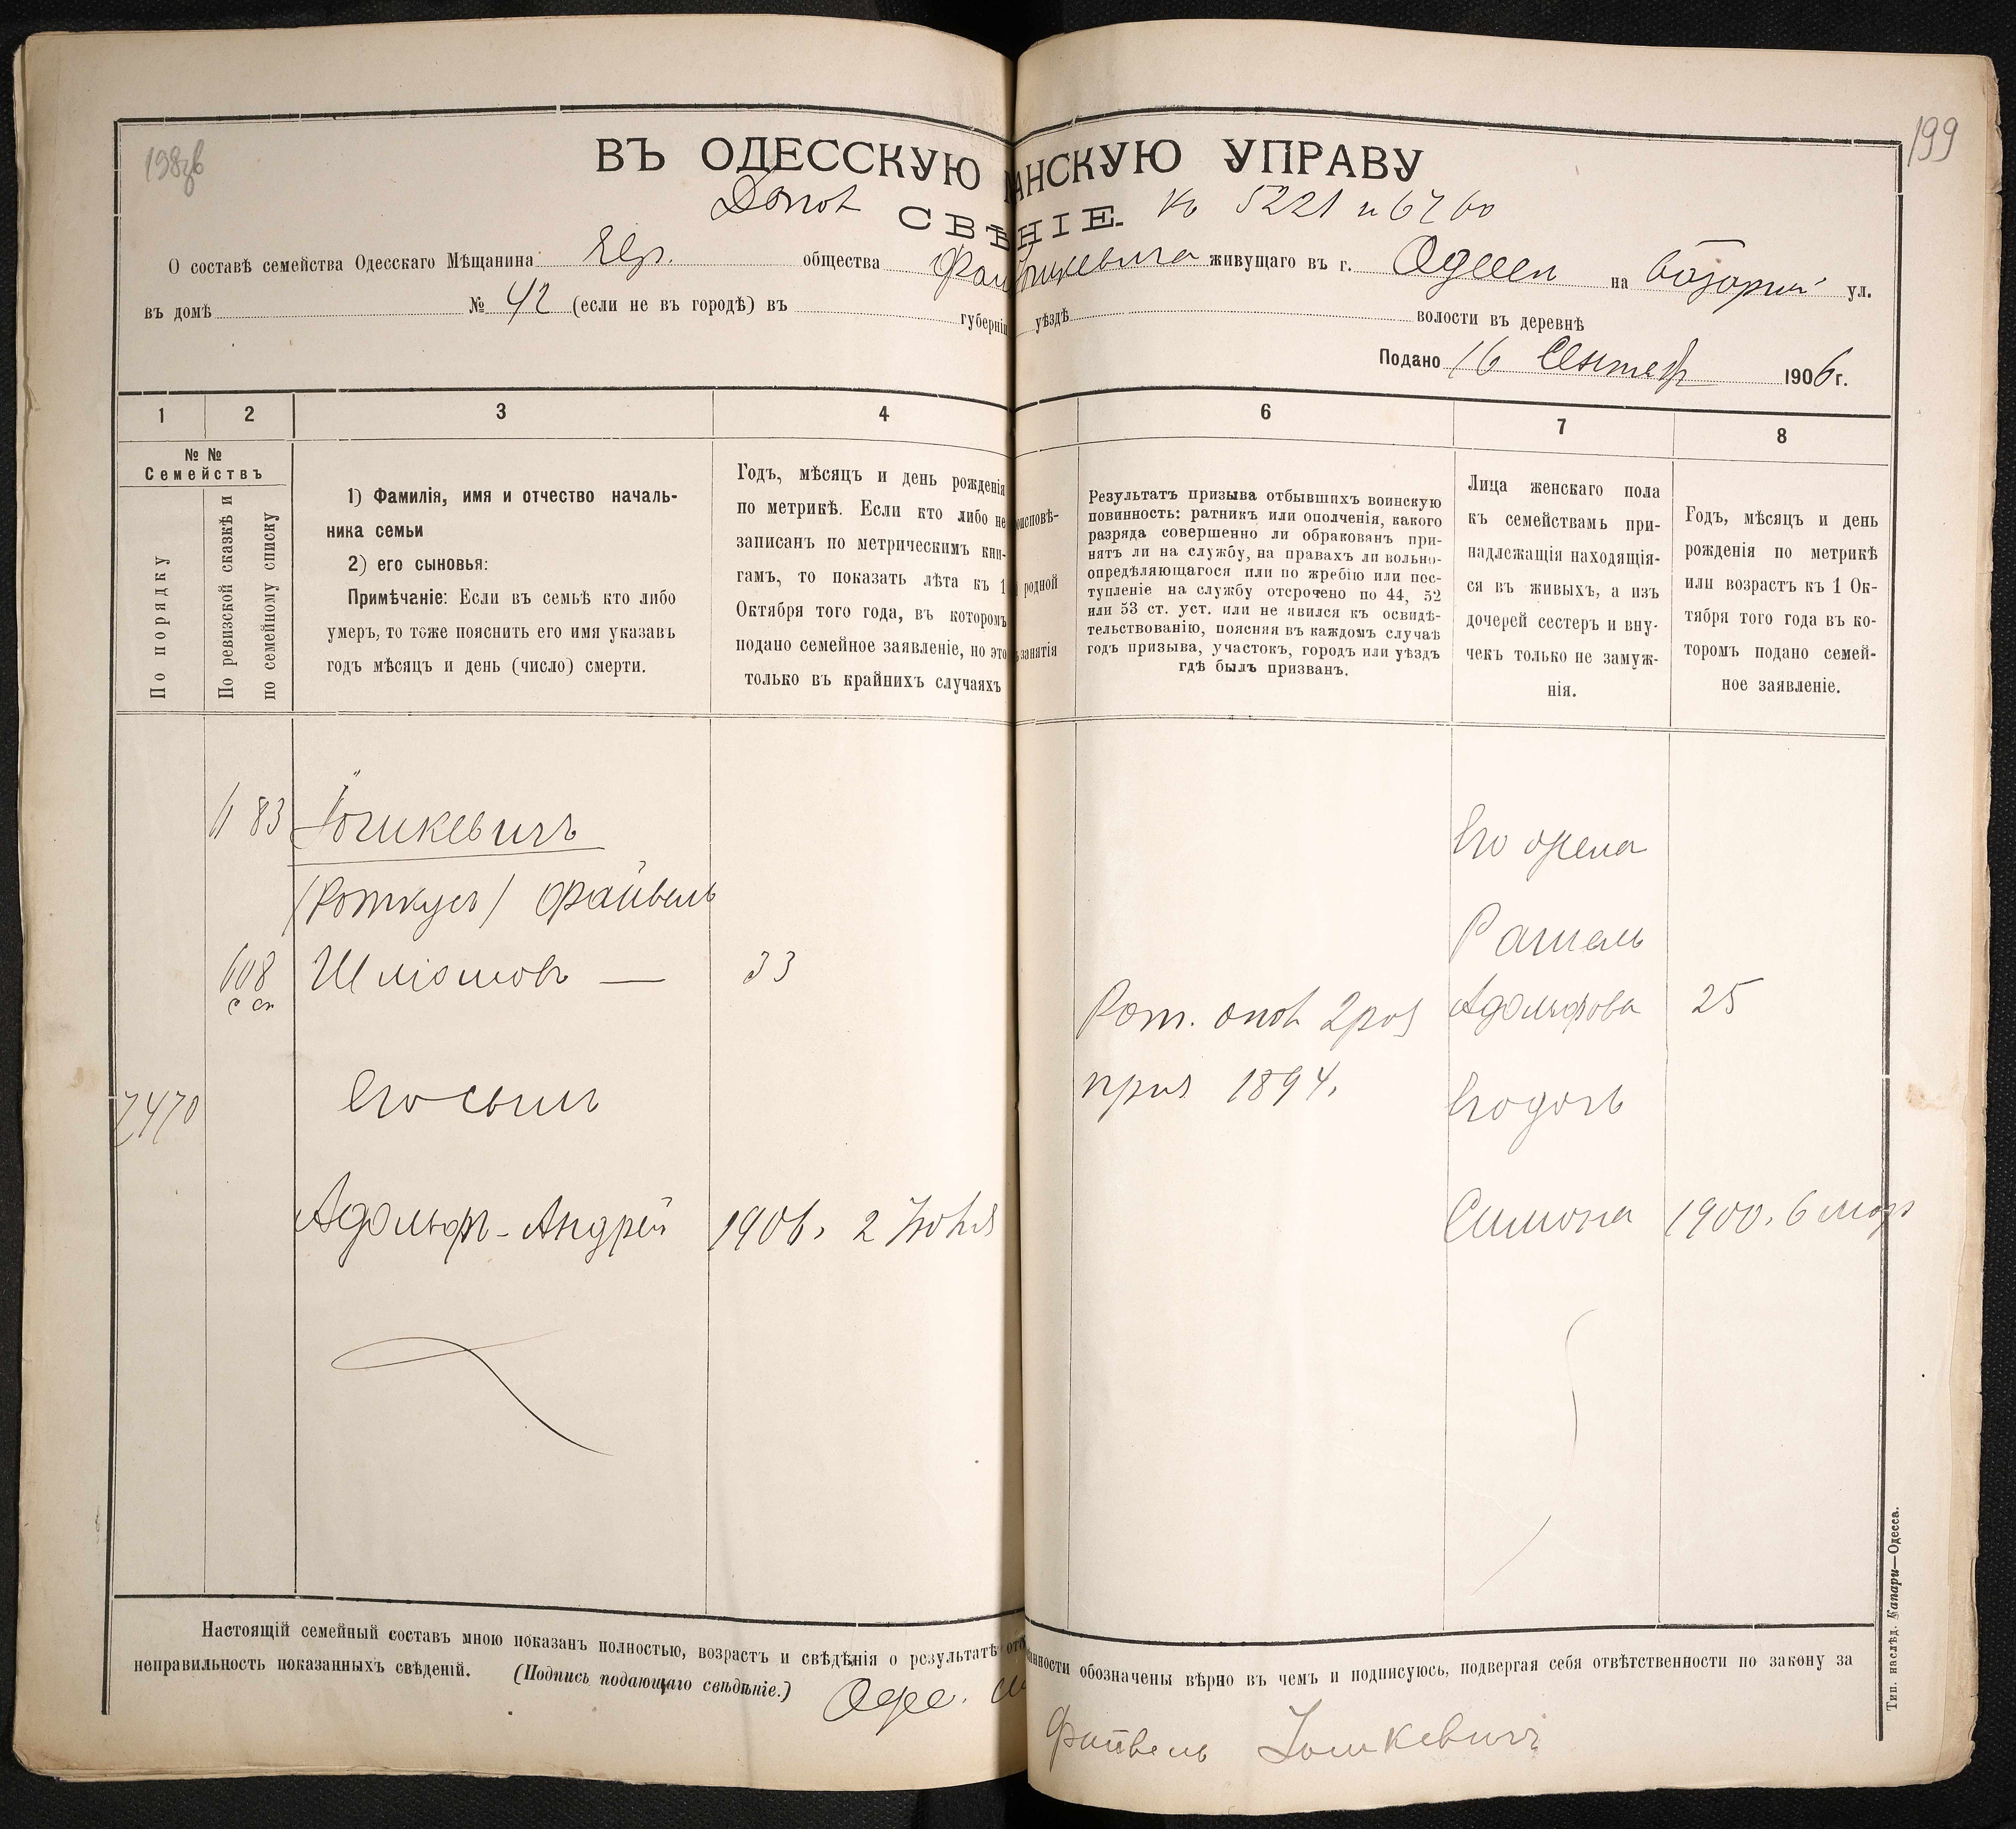 198об
199
ВЪ ОДЕССКУЮ АНСКУЮ УПРАВУ
Допол къ 5221 и 6760
СВѢ НІЕ.
О составѣ семейства Одесскаго Мѣщанина Евр. общества живущаго въ г. Одессѣ на Базарной ул.
въ домѣ № 42 (если не въ городѣ) въ губерніи уѣздѣ волости въ деревнѣ
Подано 16 Сентябр 1906 г.
1 2 3 4 6 7 8
№ №
Семействъ
По порядку
По ревизской сказкѣ и
по семейному списку
1) Фамилія, имя и отчество началь-
ника семьи
2) его сыновья:
Примѣчаніе: Если въ семьѣ кто либо
умеръ, то тоже пояснить его имя указавъ
годъ мѣсяцъ и день (число) смерти.
Годъ, мѣсяцъ и день рожденія
по метрикѣ. Если кто либо не
записанъ по метрическимъ кни-
гамъ, то показать лѣта къ 1
Октября того года, въ которомъ
подано семейное заявленіе, но это
только въ крайнихъ случаяхъ
оисповѣ-
родной
занятія
Результатъ призыва отбывшихъ воинскую
повинность: ратникъ или ополченія, какого
разряда совершенно ли обракованъ при-
нятъ ли на службу, на правахъ ли вольно-
опредѣляющагося или по жребію или пос-
тупленіе на службу отсрочено по 44, 52
или 53 ст. уст. или не явился къ освидѣ-
тельствованію, поясняя въ каждомъ случаѣ
годъ призыва, участокъ, городъ или уѣздъ
гдѣ былъ призванъ.
Лица женскаго пола
къ семействамъ при-
надлежащія находящія-
ся въ живыхъ, а изъ
дочерей сестеръ и вну-
чекъ только не замуж-
нія.
Годъ, мѣсяцъ и день
рожденія по метрикѣ
или возрастъ къ 1 Ок-
тября того года въ ко-
торомъ подано семей-
ное заявленіе.
83 Юшкевичъ
(Роткус) Файвель
608 Шліомовъ — 33
с сп
7470 Его сынъ
Адольфъ-Андрей 1906. 2 Іюня
Рат. опол 2 раз
приз 1894.
Его жена
Рашель
Адольфова 25
Его дочь
Симона 1900. 6 мар
Настоящій семейный составъ мною показанъ полностью, возрастъ и свѣдѣнія о результатѣ отб инности обозначены вѣрно въ чемъ и подписуюсь, подвергая себя отвѣтственности по закону за
неправильность показанныхъ свѣденій. (Подпись подающаго свѣдѣніе.)
Файвель Юшкевичъ
Тип. наслѣд. Капари—Одесса.